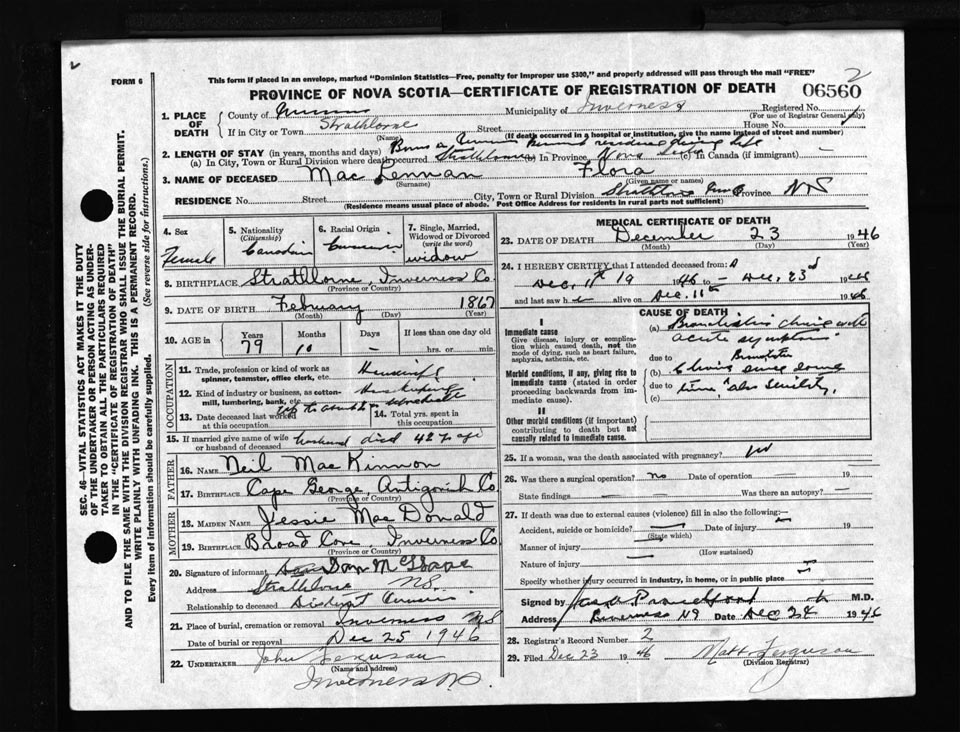 2
2
FORM 6
This form if placed in an envelope, marked "Dominion Statistics—Free, penalty for improper use $300," and properly addressed will pass through the mail "FREE"
PROVINCE OF NOVA SCOTIA—CERTIFICATE OF REGISTRATION OF DEATH
06560
1. PLACE OF DEATH
County of
Municipality of Inverness
Registered No.
(For use of Registrar General only)
If in City or Town Strathlorne Street House No.
(Name) (If death occurred in a hospital or institution, give the name instead of street and number)
2. LENGTH OF STAY (in years, months and days)
(a) In City, Town or Rural Division where death occurred Strathlorne (b) In Province Nova (c) In Canada (if immigrant) —
3. NAME OF DECEASED Mac Lennan Flora
(Surname) (Given name or names)
RESIDENCE No. Street City, Town or Rural Division Strathlorne Province NS
(Residence means usual place of abode. Post Office Address for residents in rural parts not sufficient)
4. Sex
Female
5. Nationality
(Citizenship)
Canadian
6. Racial Origin
7. Single, Married, Widowed or Divorced
(write the word)
widow
8. BIRTHPLACE Strathlorne Inverness Co.
(Province or Country)
9. DATE OF BIRTH February 1867
(Month) (Day) (Year)
10. AGE in
Years 79
Months
Days —
If less than one day old
hrs. or min.
OCCUPATION
11. Trade, profession or kind of work as spinner, teamster, office clerk, etc.
12. Kind of industry or business, as cotton-mill, lumbering, bank, etc.
13. Date deceased last worked at this occupation
14. Total yrs. spent in this occupation
15. If married give name of wife or husband of deceased husband died 42
FATHER
16. NAME Neil MacKinnon
17. BIRTHPLACE Cape George Antigonish Co
(Province or Country)
MOTHER
18. MAIDEN NAME Jessie MacDonald
19. BIRTHPLACE Broad Cove Inverness Co
(Province or Country)
20. Signature of informant Dan
Address Strathlorne NS
Relationship to deceased
21. Place of burial, cremation or removal Inverness NS
Date of burial or removal Dec 25 1946
22. UNDERTAKER John Ferguson
(Name and address)
Inverness N.S.
MEDICAL CERTIFICATE OF DEATH
23. DATE OF DEATH December 23 1946
(Month) (Day) (Year)
24. I HEREBY CERTIFY that I attended deceased from:
Dec. 11th 1946 to Dec. 23d 1946
and last saw h alive on Dec. 11th 1946
CAUSE OF DEATH
I
Immediate cause
Give disease, injury or complication which caused death, not the mode of dying, such as heart failure, asphyxia, asthenia, etc.
Morbid conditions, if any, giving rise to immediate cause (stated in order proceeding backwards from immediate cause).
II
Other morbid conditions (if important) contributing to death but not causally related to immediate cause.
(a) acute symptoms
due to
(b) since some
due to time, also senility,
(c)
25. If a woman, was the death associated with pregnancy? no
26. Was there a surgical operation? no Date of operation — 19
State findings — Was there an autopsy? —
27. If death was due to external causes (violence) fill in also the following:—
Accident, suicide or homicide? Date of injury 19
(State which)
Manner of injury
(How sustained)
Nature of injury
Specify whether injury occurred in industry, in home, or in public place
Signed by M.D.
Inverness NS Date Dec 24 1946
28. Registrar's Record Number 2
29. Filed Dec 23 1946 Matt Ferguson
(Division Registrar)
SEC. 46—VITAL STATISTICS ACT MAKES IT THE DUTY OF THE UNDERTAKER OR PERSON ACTING AS UNDERTAKER TO OBTAIN ALL THE PARTICULARS REQUIRED IN THE "CERTIFICATE OF REGISTRATION OF DEATH" AND TO FILE THE SAME WITH THE DIVISION REGISTRAR WHO SHALL ISSUE THE BURIAL PERMIT.
WRITE PLAINLY WITH UNFADING INK. THIS IS A PERMANENT RECORD.
Every item of information should be carefully supplied. (See reverse side for instructions.)